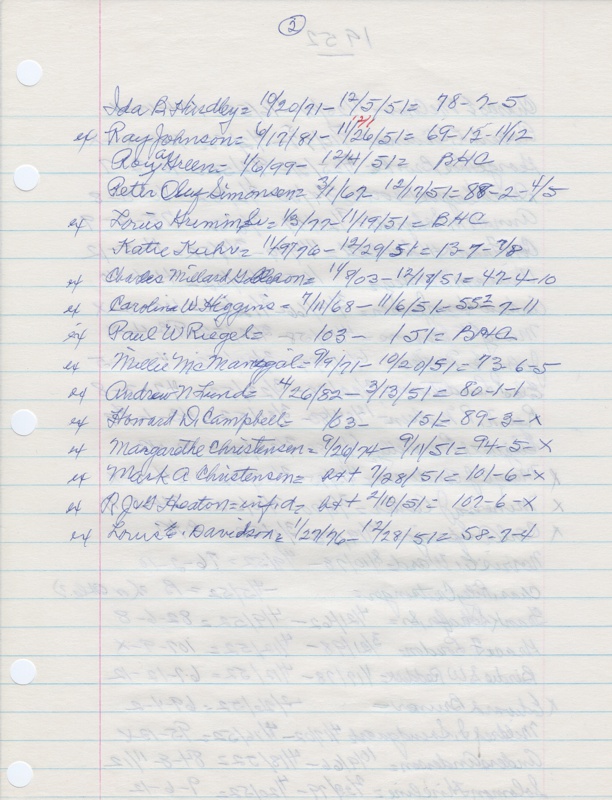 2
Ida B. Hindley = 10/20/71 - 12/5/51 = 78-7-5
12/1
ex Ray Johnson = 6/17/81 - 11/26/51 = 69-12-11/12
Roy Green = 1/6/99 - 12/4/51 = BHC
Peter Simonsen = 3/1/67 - 12/17/51 = 88-2-4/5
ex Louis = 1/3/77 - 11/19/51 = BHC
Katie Kuhr = 11/9/76 - 12/29/51 = 13-7-7/8
ex Charles Millard = 11/8/03 - 12/18/51 = 47-4-10
ex Caroline W. Higgins = 7/11/68 - 11/6/51 = 55-7-11
ex Paul W Riegel = - 103 - 151 = BHC
ex Millie McManegal = 9/9/71 - 10/20/51 = 73-6-5
ex Andrew N Lund = 4/26/82 - 3/13/51 = 80-1-1
ex Howard D. Campbell = - 103 - 151 = 89-3-x
ex Margarethe Christensen = 9/26/74 - 9/11/51 = 94-5-x
ex Mark A Christensen = 7/28/51 = 101-6-x
ex R.J. & G. Heaton = inf. d = 2/10/51 = 107-6-x
ex Louis E. Davidson = 1/27/76 - 12/28/51 = 58-7-4